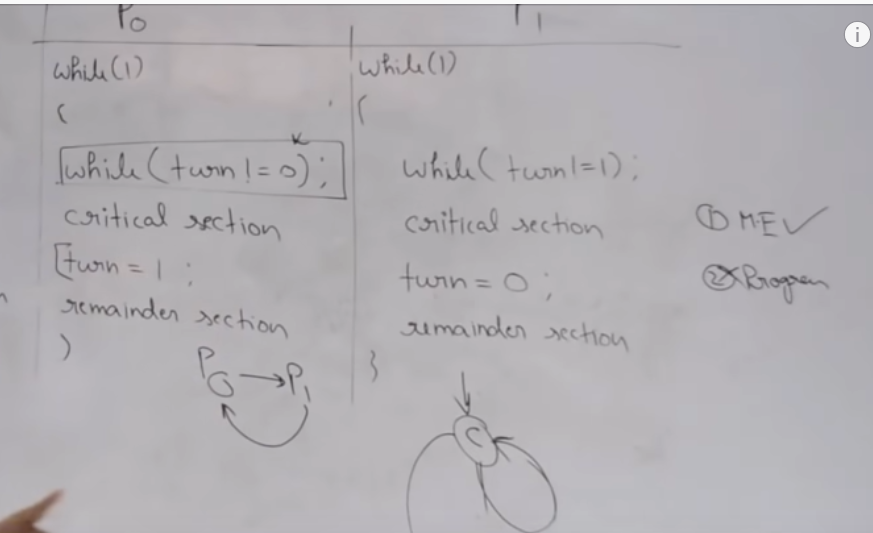 P0
P1
while(1)
{
while(turn != 0);
critical section
turn = 1 ;
remainder section
}
while(1)
{
while(turn!=1);
critical section
turn = 0 ;
remainder section
}
① M.E ✓
② × Progren
P0 → P1
C
i